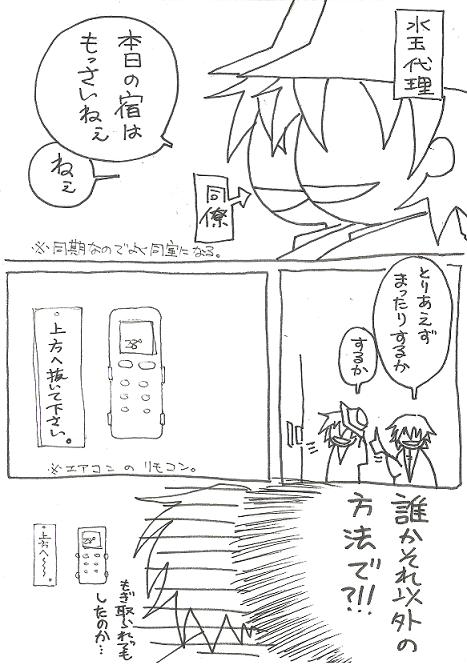 水玉代理
本日の宿は
もっさいねぇ
ねぇ
同僚
※同期なのでよく同室になる。
とりあえず
まったりするか
するか
28°
上方へ抜いて下さい。
※エアコンのリモコン。
誰かそれ以外の
方法で?!!
28°
上方へ〜〜。
もぎ取られっても
したのか…